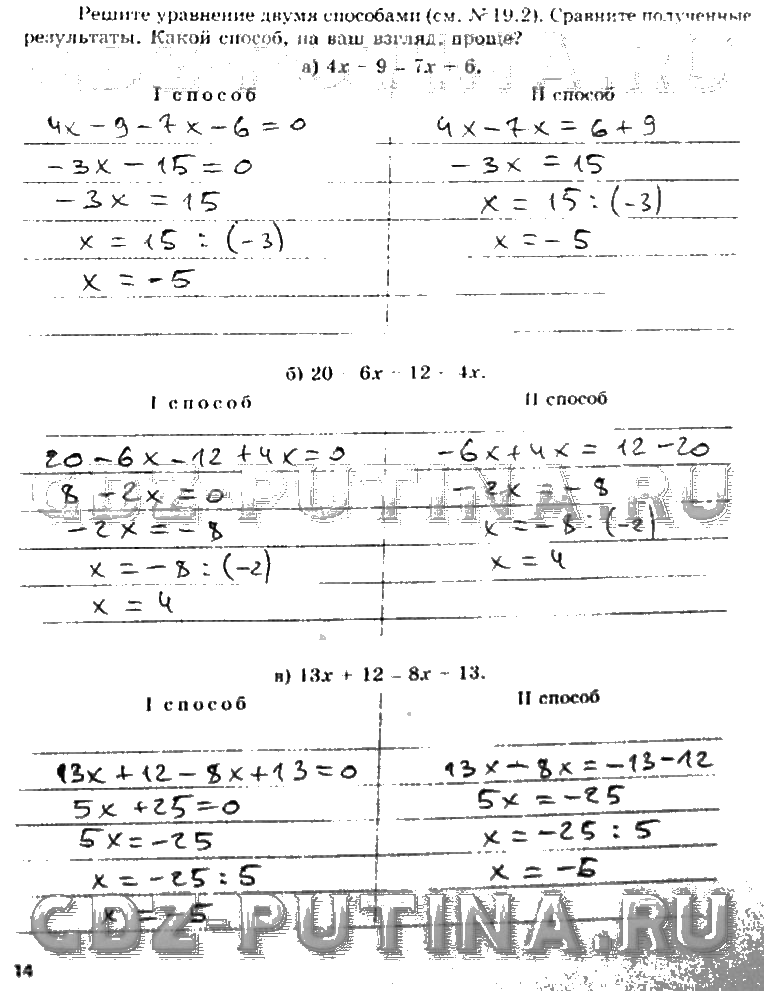 Решите уравнение двумя способами (см. № 19.2). Сравните полученные
результаты. Какой способ, на ваш взгляд, проще?
а) 4x - 9 - 7x + 6.
I способ
4x - 9 - 7x - 6 = 0
- 3x - 15 = 0
- 3x = 15
x = 15 : (-3)
x = - 5
II способ
4x - 7x = 6 + 9
- 3x = 15
x = 15 : (-3)
x = - 5
б) 20 - 6x - 12 - 4x.
I способ
20 - 6x - 12 + 4x = 0
8 - 2x = 0
- 2x = - 8
x = - 8 : (-2)
x = 4
II способ
- 6x + 4x = 12 - 20
- 2x = - 8
x = - 8 : (-2)
x = 4
в) 13x + 12 - 8x - 13.
I способ
13x + 12 - 8x + 13 = 0
5x + 25 = 0
5x = -25
x = -25 : 5
x = - 5
II способ
13x - 8x = -13 - 12
5x = -25
x = -25 : 5
x = -5
GDZ-PUTINA.RU
14